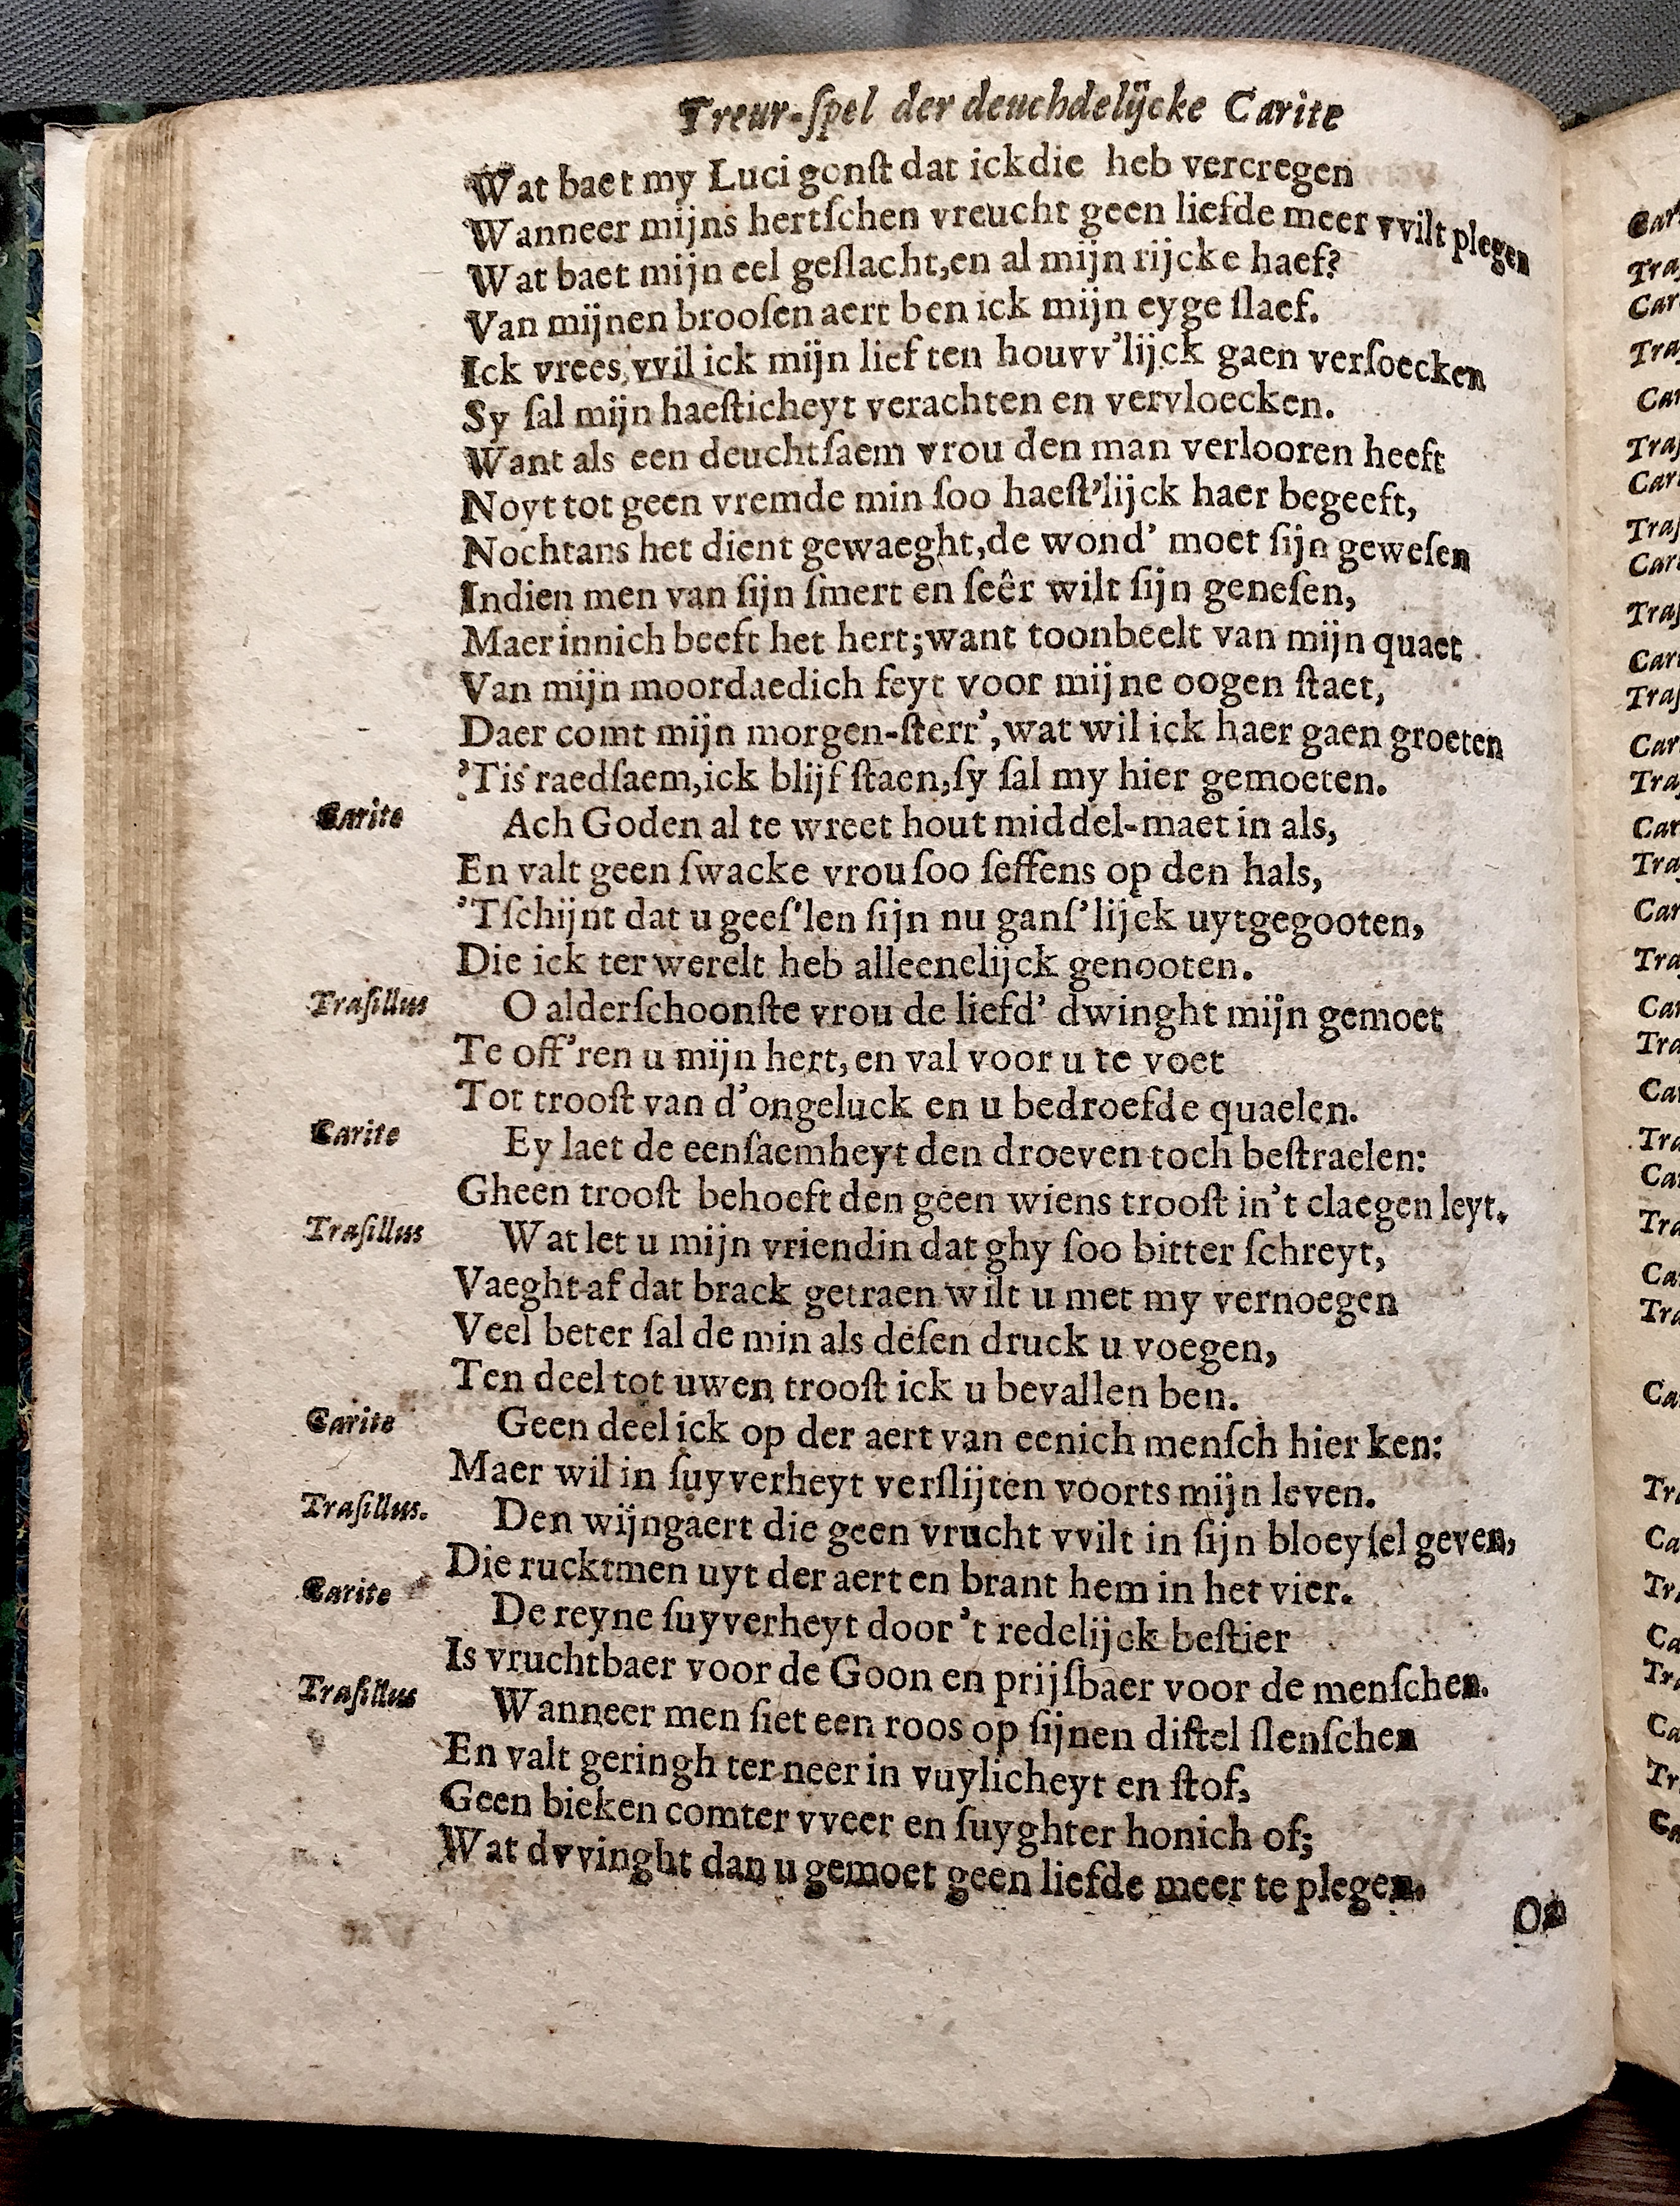 Treur-ſpel der deuchdelijcke Carite
Wat baet my Luci gonſt dat ick die heb vercregen
Wanneer mijns hertſchen vreucht geen liefde meer vvilt plegen
Wat baet mijn eel geſlacht, en al mijn rijcke haef?
Van mijnen brooſen aert ben ick mijn eyge ſlaef.
Ick vrees, vvil ick mijn lief ten houvv'lijck gaen verſoecken
Sy ſal mijn haeſticheyt verachten en vervloecken.
Want als een deuchtſaem vrou den man verlooren heeft
Noyt tot geen vremde min ſoo haeſt'lijck haer begeeft,
Nochtans het dient gewaeght, de wond' moet ſijn geweſen
Indien men van ſijn ſmert en ſeêr wilt ſijn geneſen,
Maer innich beeft het hert; want toonbeelt van mijn quaet
Van mijn moordaedich feyt voor mijne oogen ſtaet,
Daer comt mijn morgen-ſterr', wat wil ick haer gaen groeten
'Tis raedſaem, ick blijf ſtaen, ſy ſal my hier gemoeten.
Carite Ach Goden al te wreet hout middel-maet in als,
En valt geen ſwacke vrou ſoo ſeffens op den hals,
'Tſchijnt dat u geeſ'len ſijn nu ganſ'lijck uytgegooten,
Die ick ter werelt heb alleenelijck genooten.
Traſillus O alderſchoonſte vrou de liefd' dwinght mijn gemoet
Te off'ren u mijn hert, en val voor u te voet
Tot trooſt van d'ongeluck en u bedroefde quaelen.
Carite Ey laet de eenſaemheyt den droeven toch beſtraelen:
Gheen trooſt behoeft den geen wiens trooſt in't claegen leyt.
Traſillus Wat let u mijn vriendin dat ghy ſoo bitter ſchreyt,
Vaeght af dat brack getraen wilt u met my vernoegen
Veel beter ſal de min als deſen druck u voegen,
Ten deel tot uwen trooſt ick u bevallen ben.
Carite Geen deel ick op der aert van eenich menſch hier ken:
Maer wil in ſuyverheyt verſlijten voorts mijn leven.
Traſillus. Den wijngaert die geen vrucht vvilt in ſijn bloeyſel geven,
Die rucktmen uyt der aert en brant hem in het vier.
Carite De reyne ſuyverheyt door 't redelijck beſtier
Is vruchtbaer voor de Goon en prijſbaer voor de menſchen.
Traſillus Wanneer men ſiet een roos op ſijnen diſtel ſlenſchen
En valt geringh ter neer in vuylicheyt en ſtof,
Geen bieken comter vveer en ſuyghter honich of;
Wat dvvinght dan u gemoet geen liefde meer te plegen.